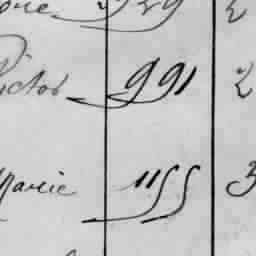 929 2
Victor 991 2
Marie 1155 3